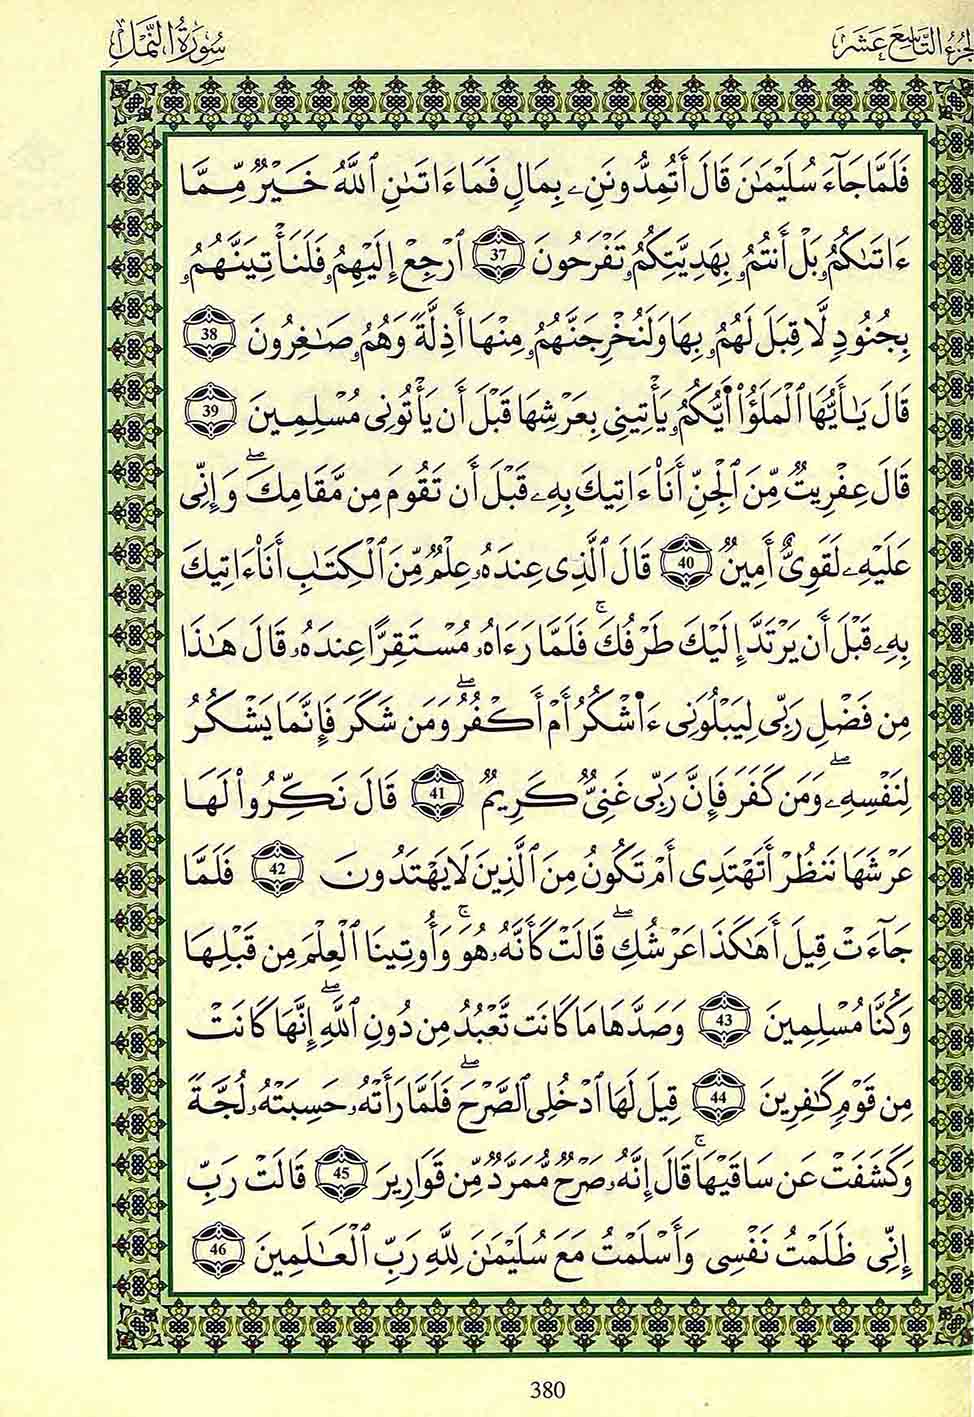 الجزء التاسع عشر
سورة النمل
فَلَمَّا جَآءَ سُلَيْمَٰنَ قَالَ أَتُمِدُّونَنِۦ بِمَالٍ فَمَآ ءَاتَىٰنِ ٱللَّهُ خَيْرٌ مِّمَّا
ءَاتَىٰكُمُۥ بَلْ أَنتُمُۥ بِهَدِيَّتِكُمُۥ تَفْرَحُونَ 37 ٱرْجِعْ إِلَيْهِمُۥ فَلَنَأْتِيَنَّهُمُۥ
بِجُنُودٍ لَّا قِبَلَ لَهُمُۥ بِهَا وَلَنُخْرِجَنَّهُمُۥ مِنْهَآ أَذِلَّةً وَهُمُۥ صَٰغِرُونَ 38
قَالَ يَٰٓأَيُّهَا ٱلْمَلَؤُاْ أَيُّكُمُۥ يَأْتِينِى بِعَرْشِهَا قَبْلَ أَن يَأْتُونِى مُسْلِمِينَ 39
قَالَ عِفْرِيتٌ مِّنَ ٱلْجِنِّ أَنَا۠ ءَاتِيكَ بِهِۦ قَبْلَ أَن تَقُومَ مِن مَّقَامِكَ ۖ وَإِنِّى
عَلَيْهِۦ لَقَوِىٌّ أَمِينٌ 40 قَالَ ٱلَّذِى عِندَهُۥ عِلْمٌ مِّنَ ٱلْكِتَٰبِ أَنَا۠ ءَاتِيكَ
بِهِۦ قَبْلَ أَن يَرْتَدَّ إِلَيْكَ طَرْفُكَ ۚ فَلَمَّا رَءَاهُۥ مُسْتَقِرًّا عِندَهُۥ قَالَ هَٰذَا
مِن فَضْلِ رَبِّى لِيَبْلُوَنِى ءَا۬شْكُرُ أَمْ أَكْفُرُ ۖ وَمَن شَكَرَ فَإِنَّمَا يَشْكُرُ
لِنَفْسِهِۦ ۖ وَمَن كَفَرَ فَإِنَّ رَبِّى غَنِىٌّ كَرِيمٌ 41 قَالَ نَكِّرُواْ لَهَا
عَرْشَهَا نَنظُرْ أَتَهْتَدِىٓ أَمْ تَكُونُ مِنَ ٱلَّذِينَ لَا يَهْتَدُونَ 42 فَلَمَّا
جَآءَتْ قِيلَ أَهَٰكَذَا عَرْشُكِ ۖ قَالَتْ كَأَنَّهُۥ هُوَ ۚ وَأُوتِينَا ٱلْعِلْمَ مِن قَبْلِهَا
وَكُنَّا مُسْلِمِينَ 43 وَصَدَّهَا مَا كَانَت تَّعْبُدُ مِن دُونِ ٱللَّهِ ۖ إِنَّهَا كَانَتْ
مِن قَوْمٍ كَٰفِرِينَ 44 قِيلَ لَهَا ٱدْخُلِى ٱلصَّرْحَ ۖ فَلَمَّا رَأَتْهُۥ حَسِبَتْهُۥ لُجَّةً
وَكَشَفَتْ عَن سَاقَيْهَا ۚ قَالَ إِنَّهُۥ صَرْحٌ مُّمَرَّدٌ مِّن قَوَارِيرَ 45 قَالَتْ رَبِّ
إِنِّى ظَلَمْتُ نَفْسِى وَأَسْلَمْتُ مَعَ سُلَيْمَٰنَ لِلَّهِ رَبِّ ٱلْعَٰلَمِينَ 46
380